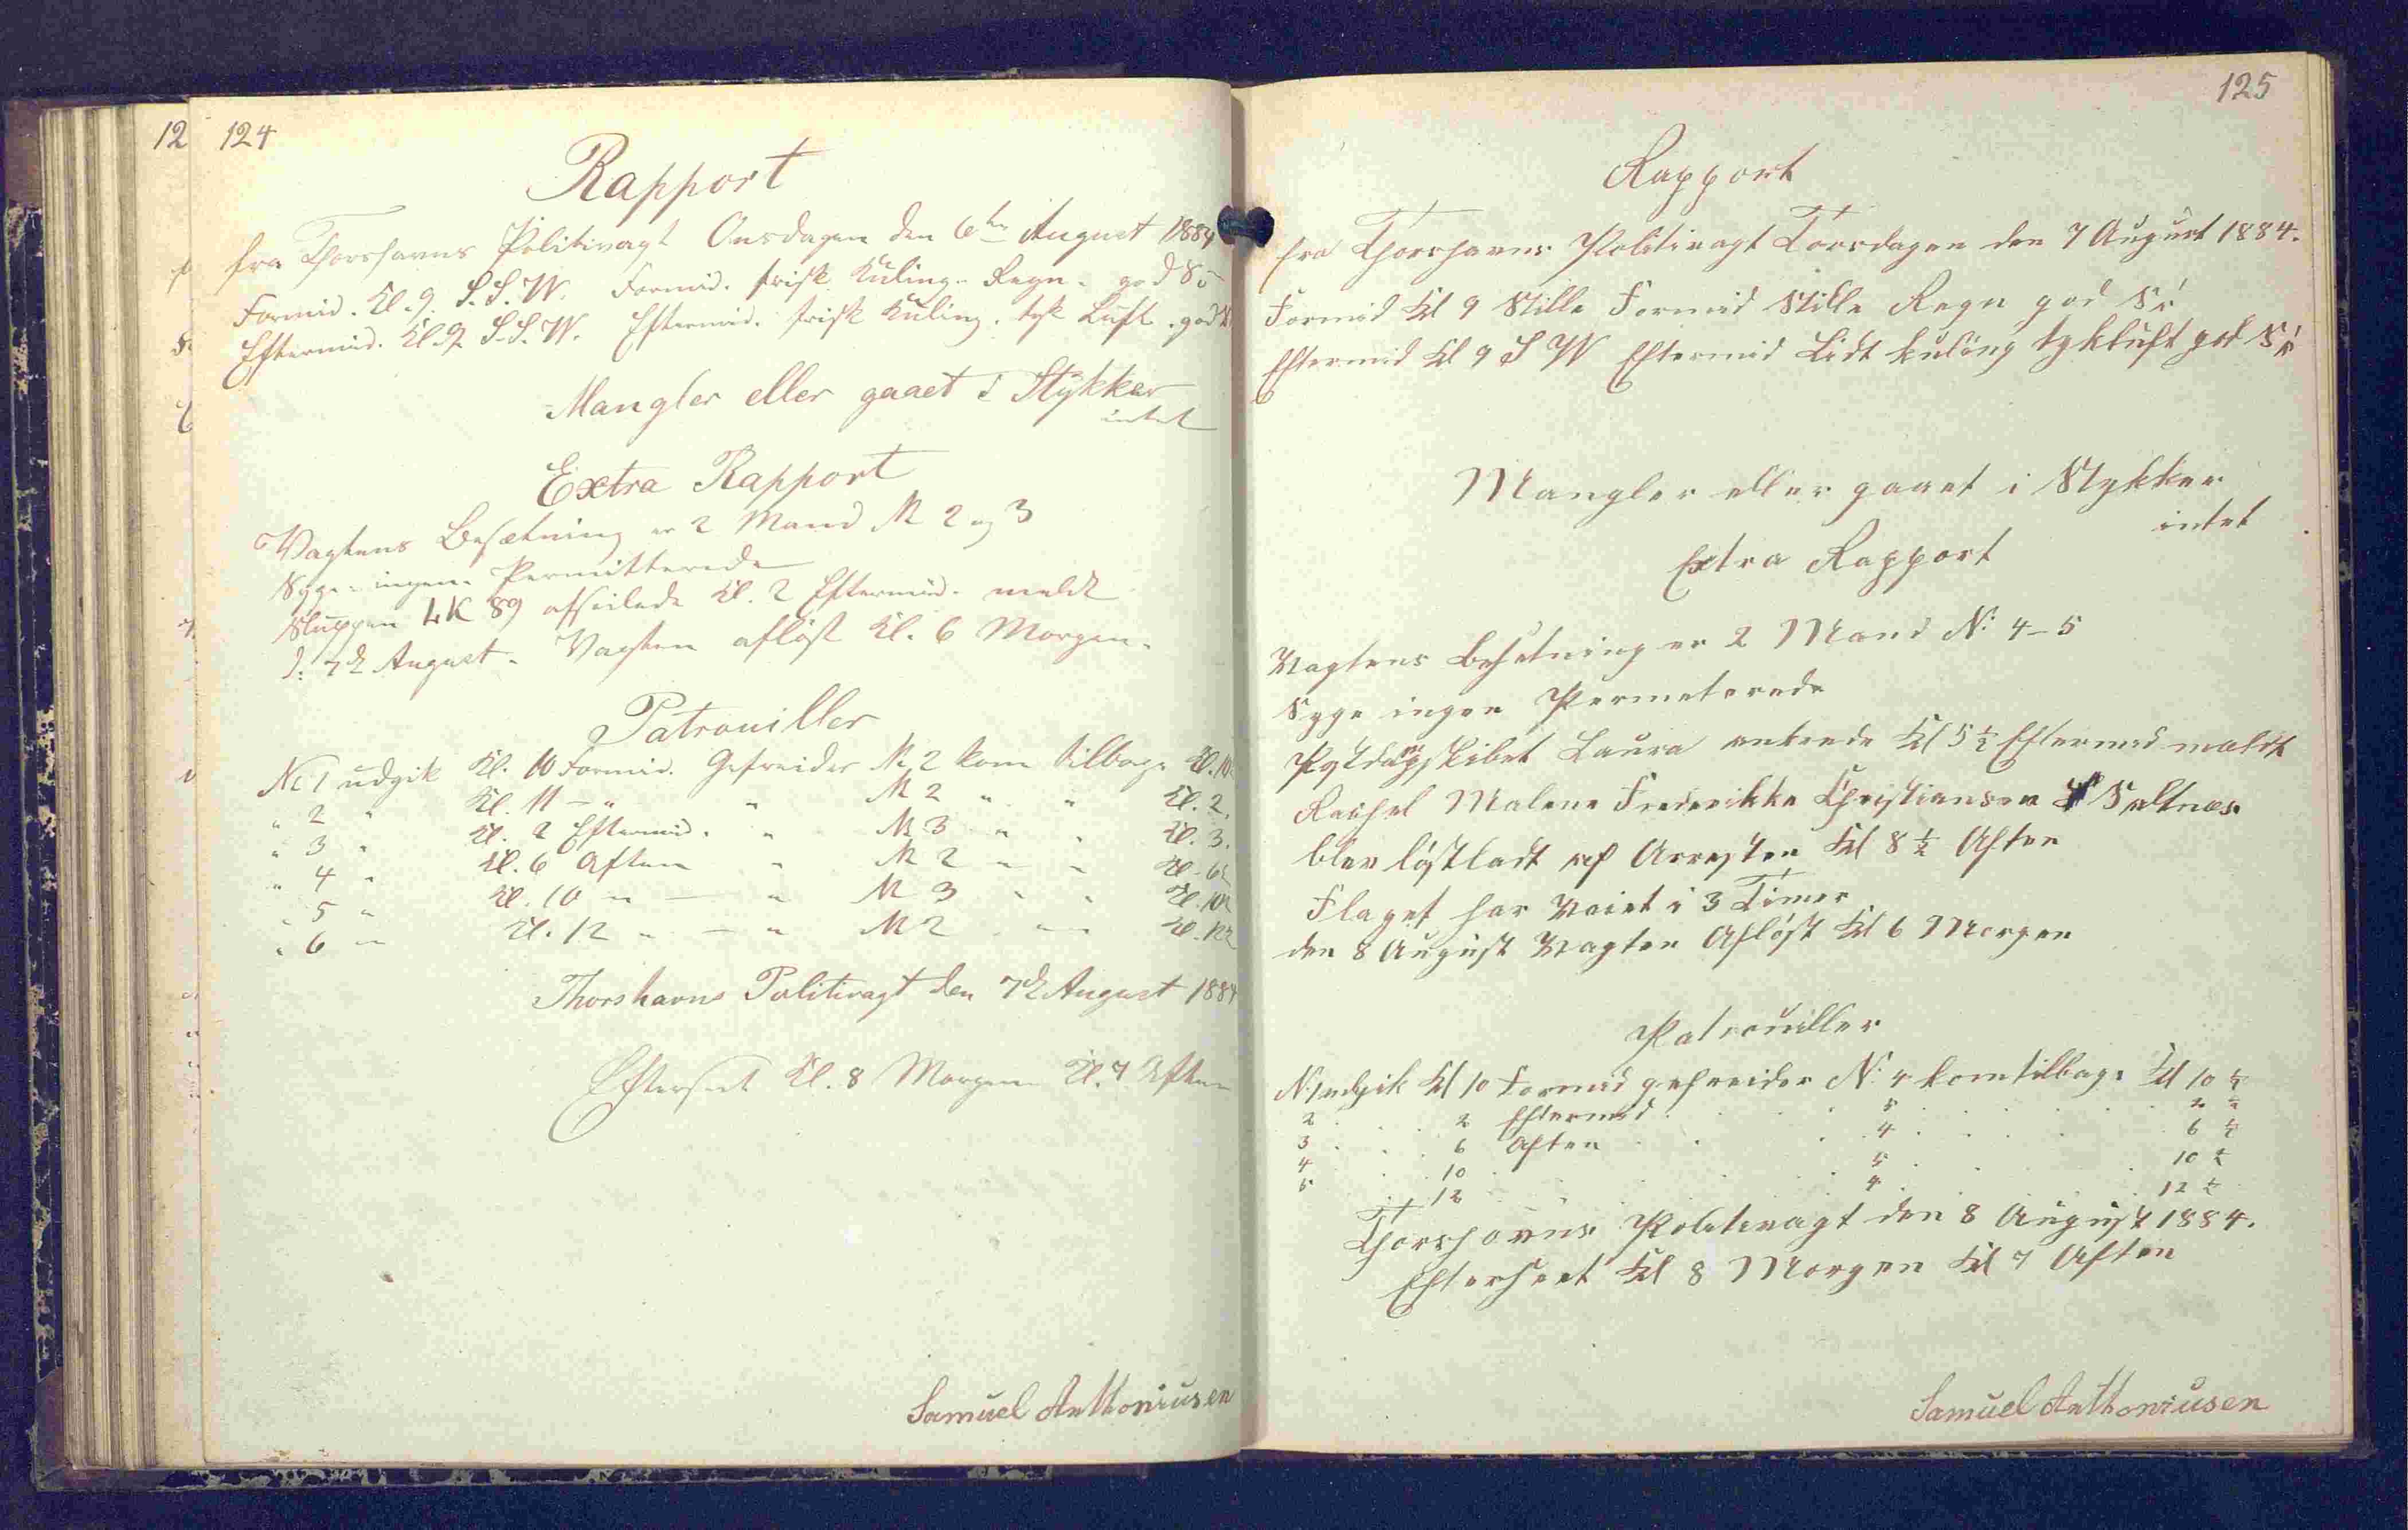 124
Rapport
fra Thorshavns Politivagt Onsdagen den 6te August 1884
Formid. Kl. 9. S.S.W. Formid. frisk Kuling. Regn. god Sö
Eftermid. Kl. 9 S.S.W. Eftermid. frisk Kuling. tyk Luft. god
Mangler eller gaaet i Stykker
intet
Extra Rapport
Vagtens Besætning er 2 Mand No 2 og 3
Syge ingen Permitterede
Sluppen LK 89 afseilede Kl. 2 Eftermid. meldt
d: 7de August. Vagten aflöst Kl. 6 Morgen.
Patrouiller
No 1 udgik Kl. 10 Formid. Gefreider No 2 kom tilbage Kl. 10
" 2 " Kl. 11 – " " No 2 " " Kl. 2.
" 3 " Kl. 2 Eftermid. " No 3 " " Kl. 3.
" 4 " Kl. 6 Aften " No 2 " " Kl. 6½
" 5 " Kl. 10 " – " No 3 " " Kl. 10½
" 6 " Kl. 12 " – " No 2 " " Kl. 12½
Thorshavns Politivagt den 7de August 1884
Efterseet Kl. 8 Morgen Kl. 7 Aften
Samuel Anthoniusen
125
Rapport
fra Thorshavns Politivagt Torsdagen den 7 August 1884.
Formid Kl 9 Stille Formid Stille Regn god Sö
Eftermid Kl 9 S W Eftermid Lidt kuling tykluft god Sö
Mangler eller gaaet i Stykker
intet
Extra Rapport
Vagtens Besetning er 2 Mand No: 4–5
Syge ingen Permeterede
Postdampskibet Laura ankrede Kl 5½ Eftermid maldt
Rachel Malene Frederikke Christiansen Saltnes
blev löstladt af Arresten Kl 8½ Aften
Flaget har Vaiet i 3 Timer
den 8 August Vagten Aflöst Kl 6 Morgen
Patrouiller
No 1 udgik Kl 10 Formid gefreider No: 4 kom tilbage Kl 10½
2 . . . 2 Eftermid . . . 5 . . . 2½
3 . . . 6 Aften . . . 4 . . . 6½
4 . . . 10 . . . 5 . . . 10½
5 . . . 12 . . . 4 . . . 12½
Thorshavns Politivagt den 8 August 1884.
Efterseet Kl 8 Morgen Kl 7 Aften
Samuel Anthoniusen